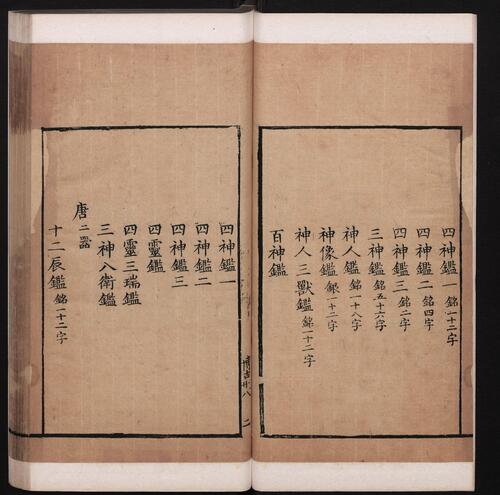 四神鑑一 銘一十二字
四神鑑二 銘四字
四神鑑三 銘二字
三神鑑 銘五十六字
神人鑑 銘一十八字
神像鑑 銀一十二字
神人三獸鑑 銘一十二字
百神鑑
博古卄八 二
四神鑑一
四神鑑二
四神鑑三
四靈鑑
四靈三瑞鑑
三神八衛鑑
唐二器
十二辰鑑 銘一十二字